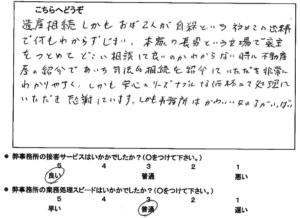 こちらへどうぞ
遺産相続しかもおば2人が自殺という初めての出来事
で何もわからずじまい。本家の長男という立場で喪主
をつとめて、どこに相談して良いのかわからない時に不動産
屋の紹介であいち司法の相続を紹介していただき非常に
わかりやすく、しかも安心のリーズナブルな価格にて処理して
いただき感謝しています。しかも事務所はかわいい
● 弊事務所の接客サービスはいかかでしたか?(〇をつけて下さい。)
5 4 3 2 1
良い 普通 悪い
● 弊事務所の業務処理スピードはいかかでしたか?(〇をつけて下さい。)
5 4 3 2 1
早い 普通 遅い